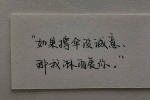 “如果撑伞没诚意，
那我淋雨爱你。”